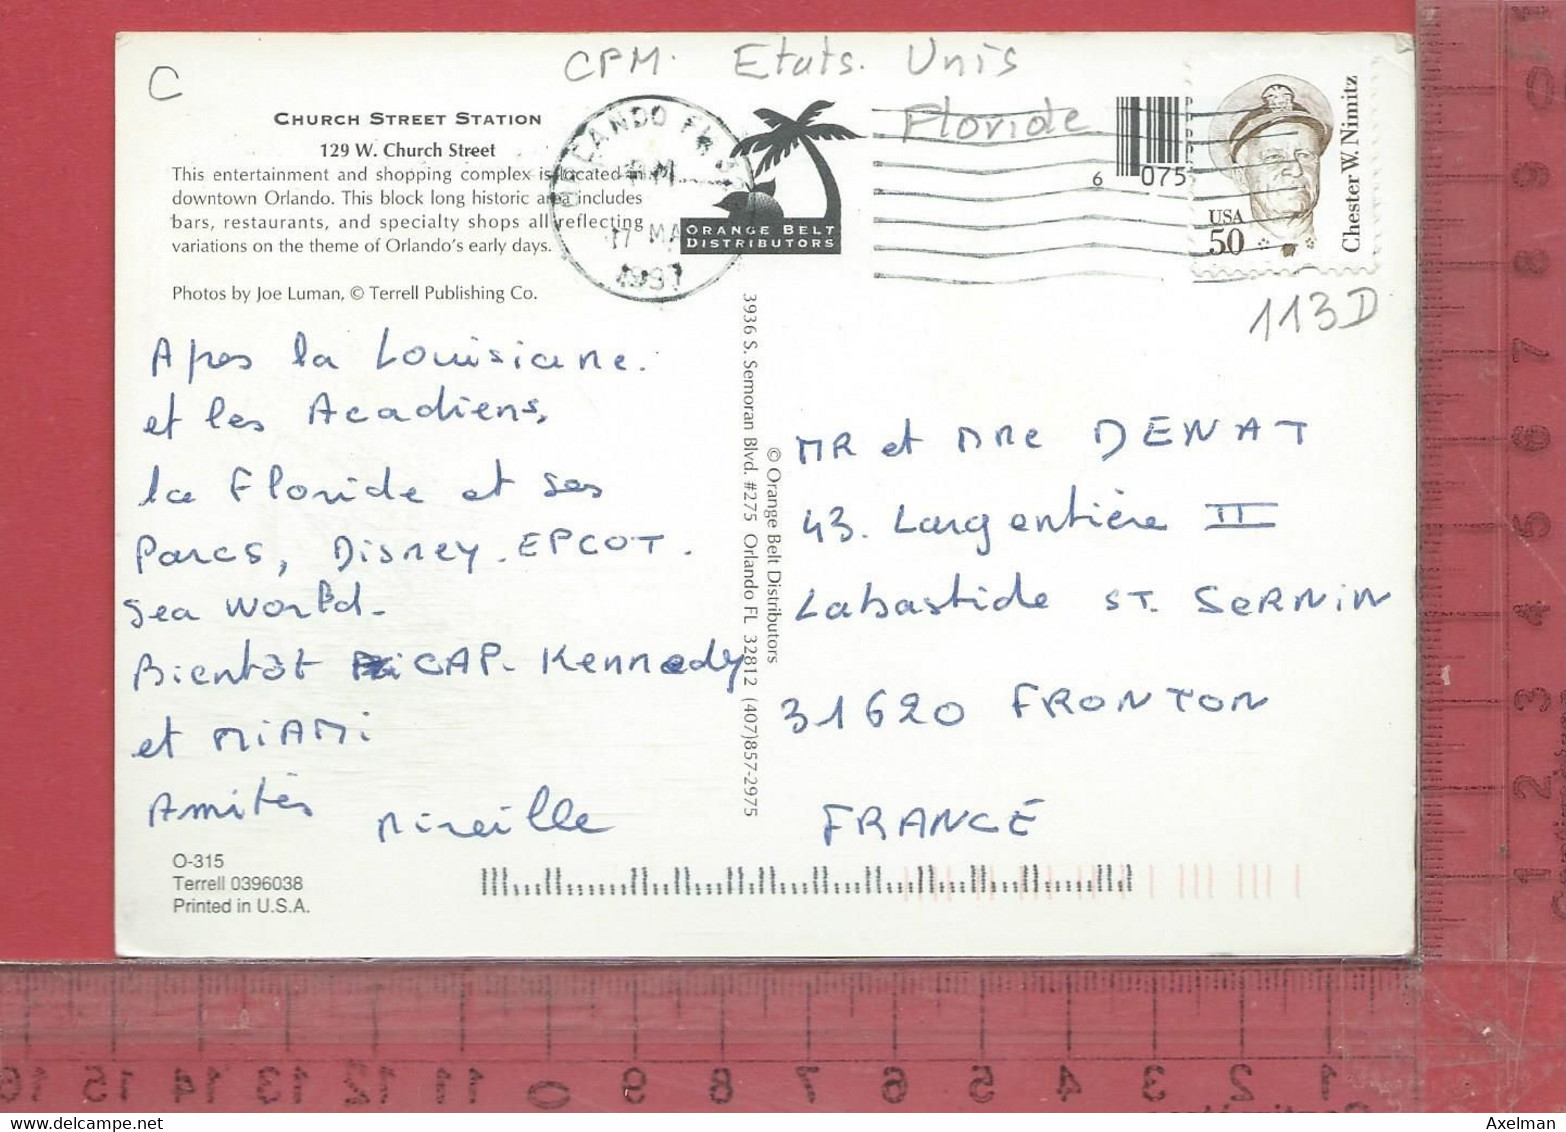 C
CPM. Etats. Unis
Floride
CHURCH STREET STATION
129 W. Church Street
This entertainment and shopping complex is located in
downtown Orlando. This block long historic area includes
bars, restaurants, and specialty shops all reflecting
variations on the theme of Orlando's early days.
Photos by Joe Luman, © Terrell Publishing Co.
ORLANDO FL
PM
17 MA
1997
ORANGE BELT
DISTRIBUTORS
6 075
USA
50
Chester W. Nimitz
113D
Apres la Louisiane.
et les Acadiens,
la Floride et ses
Parcs, Disney. EPCOT.
Sea World-
Bientôt CAP- Kennedy
et MiAMi
Amitiés Mireille
© Orange Belt Distributors
3936 S. Semoran Blvd. #275 Orlando FL 32812 (407)857-2975
MR et Mme DENAT
43. Largentière II
Labastide ST. SERNIN
31620 FRONTON
FRANCE
O-315
Terrell 0396038
Printed in U.S.A.
1 2 3 4 5 6 7 8 9 10
16 15 14 13 12 11 0 9 8 7 6 5 4 3 2 1
Axelman
www.delcampe.net